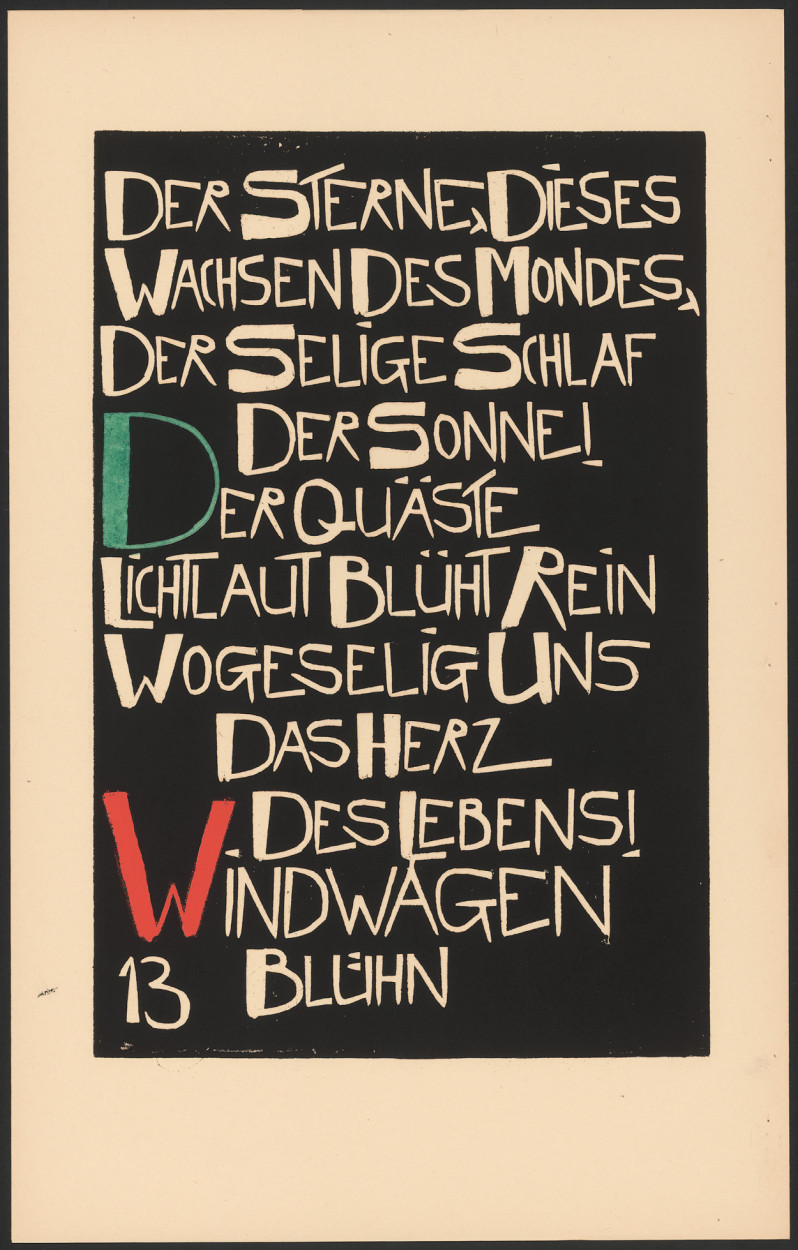 DER STERNE, DIESES
WACHSEN DES MONDES,
DER SELIGE SCHLAF
DER SONNE!
DER QUÄSTE
LICHTLAUT BLÜHT REIN
WOGESELIG UNS
DAS HERZ
DES LEBENS!
WINDWAGEN
13 BLÜHN